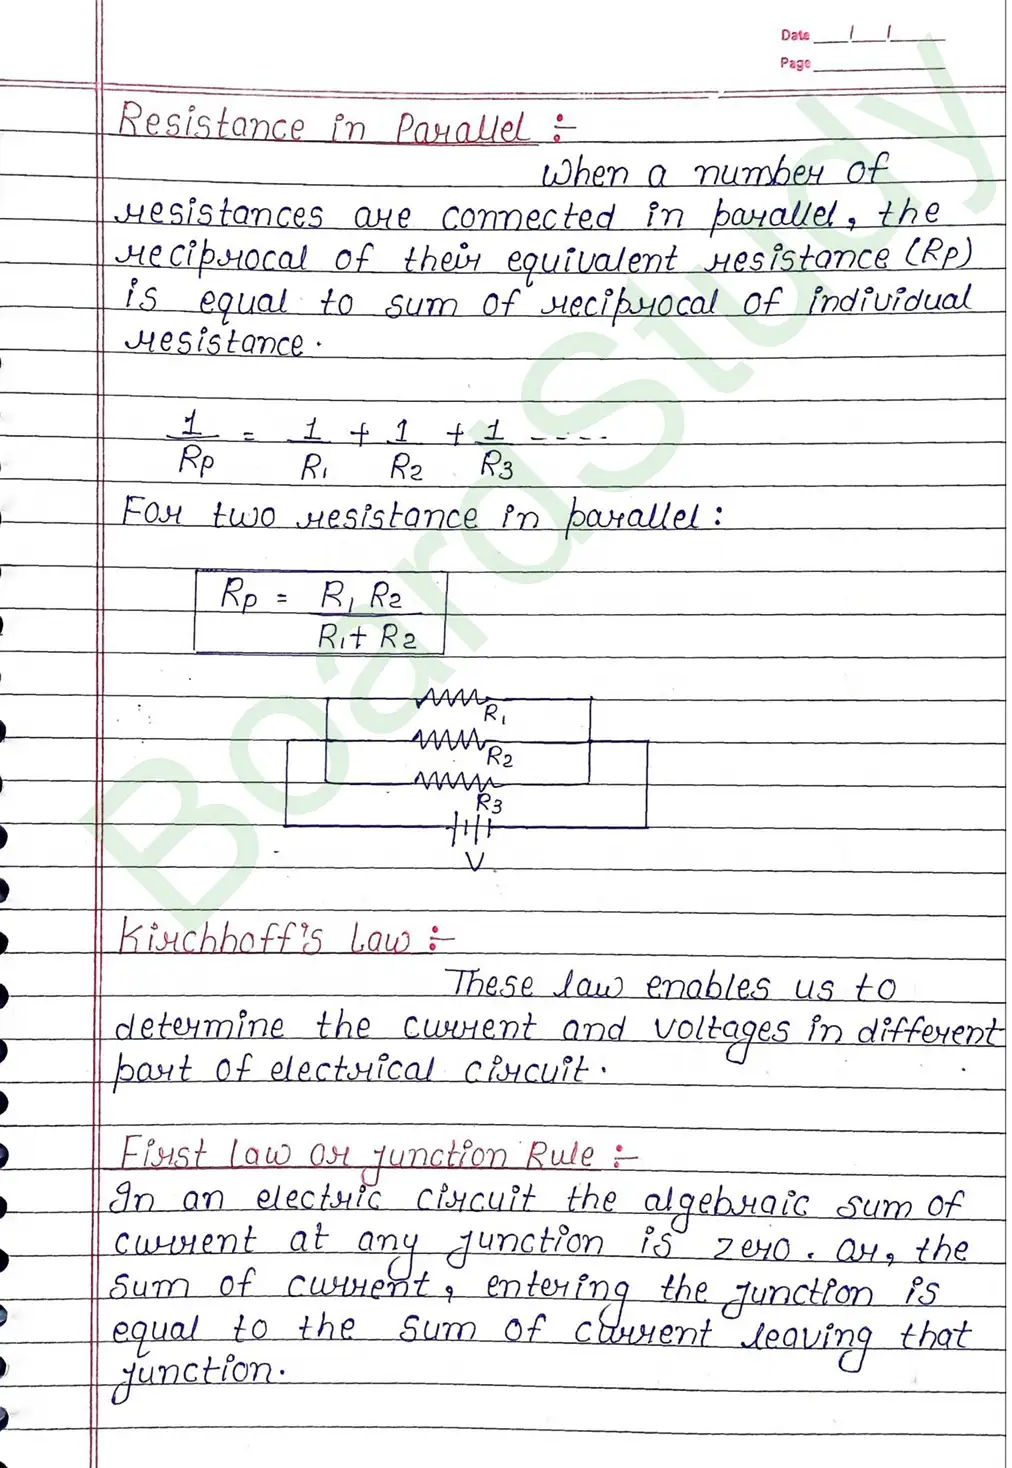 Date ___/___/___
Page ___
Resistance in Parallel :-
When a number of
resistances are connected in parallel, the
reciprocal of their equivalent resistance (Rp)
is equal to sum of reciprocal of individual
resistance.
1/Rp = 1/R1 + 1/R2 + 1/R3 ----
For two resistance in parallel:
Rp = R1 R2 / R1+ R2
R1
R2
R3
V
Kirchhoff's Law :-
These law enables us to
determine the current and voltages in different
part of electrical circuit.
First law or junction Rule :-
In an electric circuit the algebraic sum of
current at any junction is zero. or, the
sum of current, entering the junction is
equal to the sum of current leaving that
junction.
BoardStudy